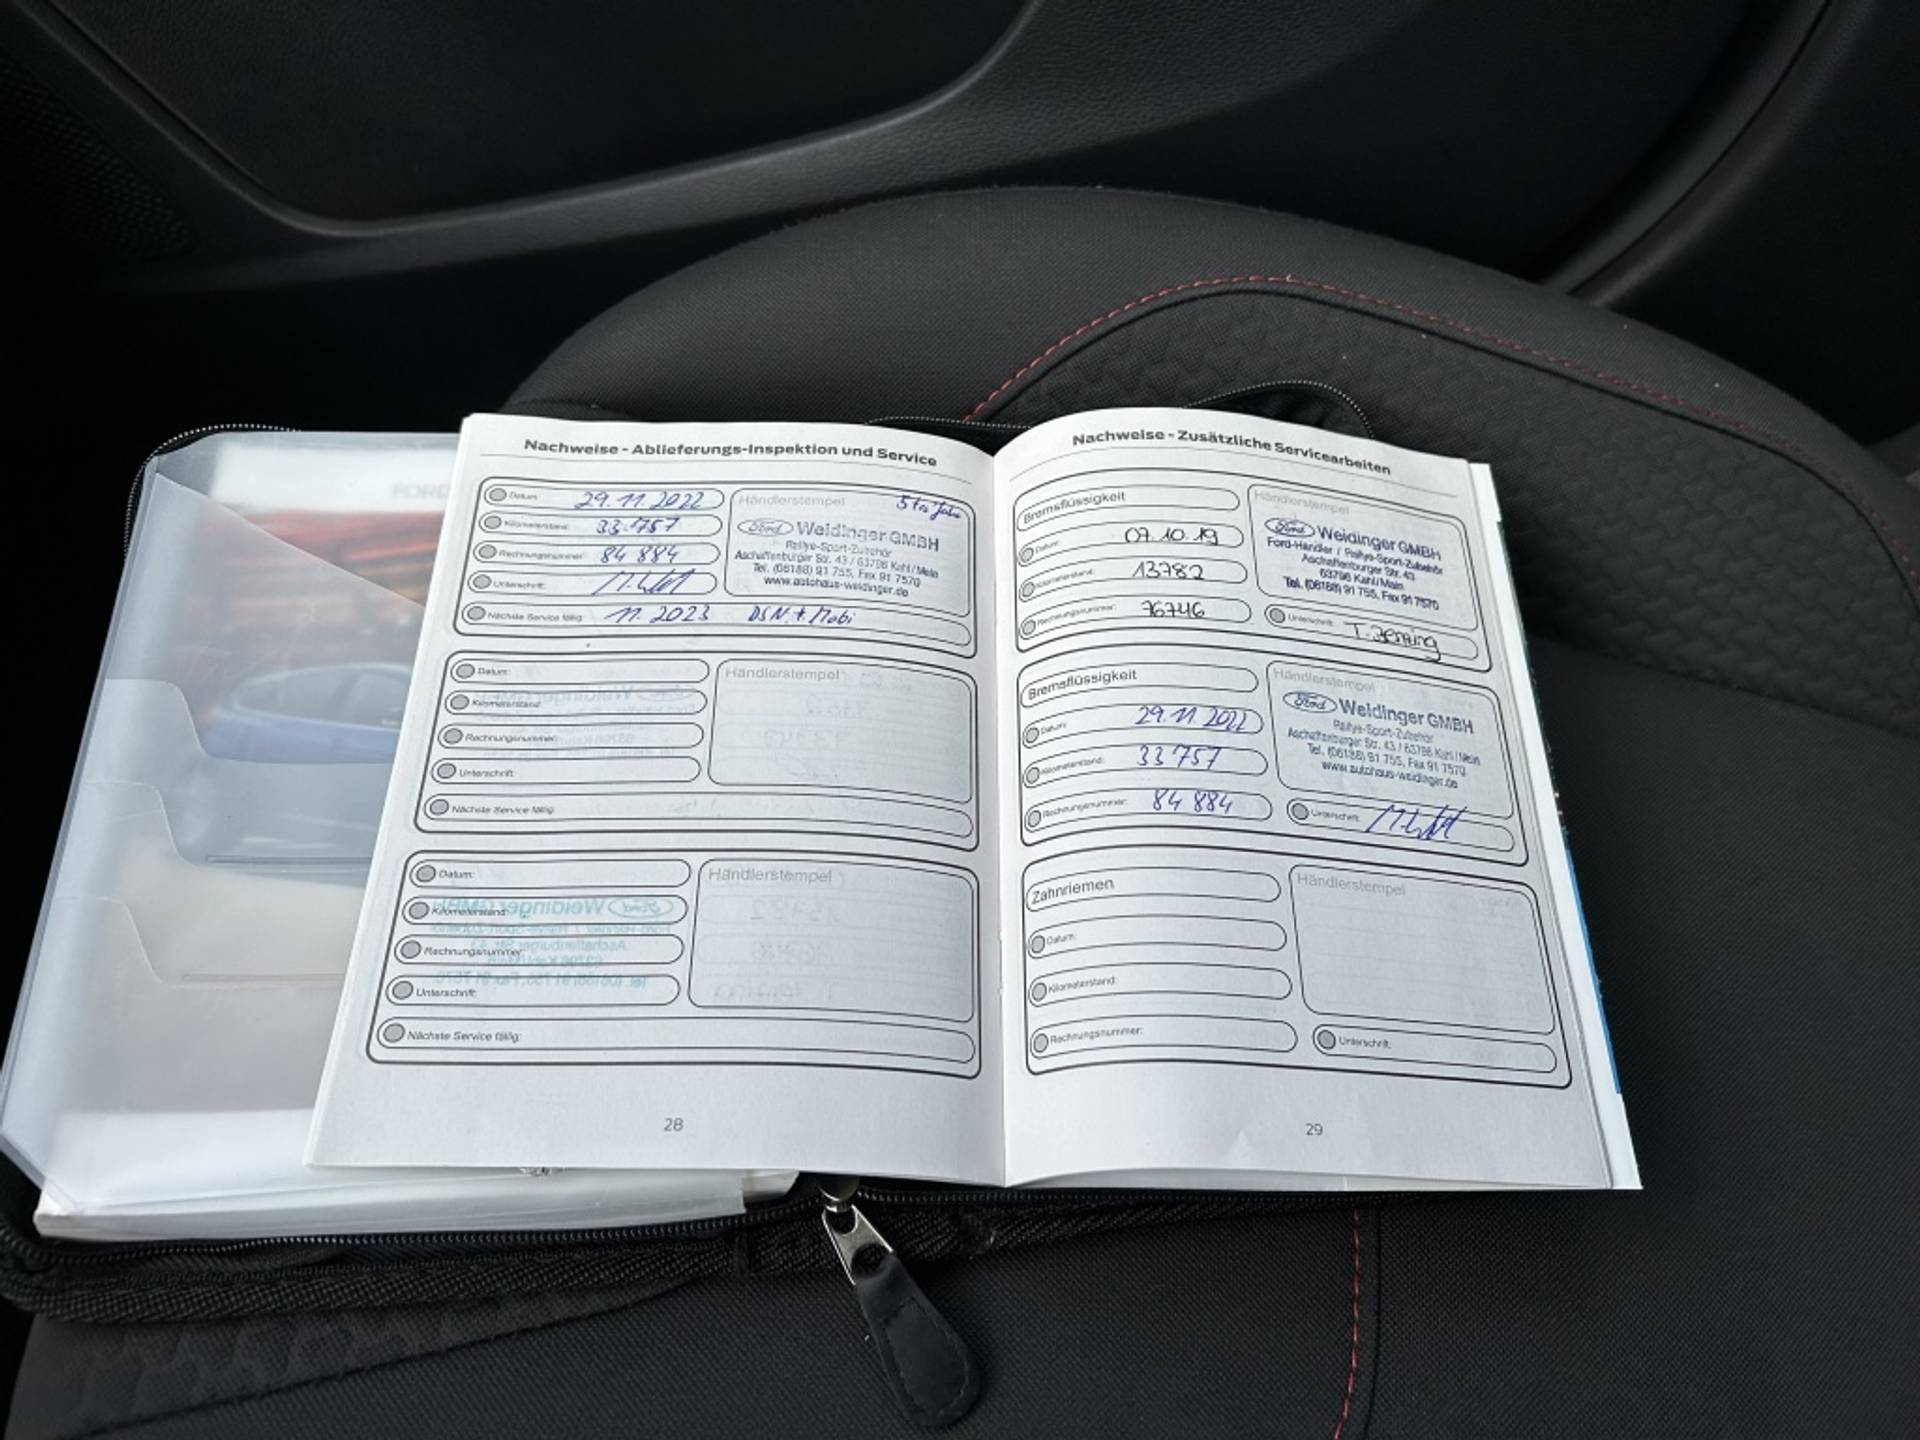 FORD
Nachweise - Ablieferungs-Inspektion und Service
Datum: 29.11.2022
Kilometerstand: 33.757
Rechnungsnummer: 84 884
Unterschrift:
Nächste Service fällig: 11.2023 DSN + Mobi
Händlerstempel
Ford Weidinger GMBH
Rallye-Sport-Zubehör
Aschaffenburger Str. 43 / 63796 Kahl/Mein
Tel. (06188) 91 755, Fax 91 7570
www.autohaus-weidinger.de
Datum:
Kilometerstand:
Rechnungsnummer:
Unterschrift:
Nächste Service fällig:
Händlerstempel
Datum:
Kilometerstand:
Rechnungsnummer:
Unterschrift:
Nächste Service fällig:
Händlerstempel
28
Nachweise - Zusätzliche Servicearbeiten
Bremsflüssigkeit
Datum: 07.10.19
Kilometerstand: 13782
Rechnungsnummer: 76746
Händlerstempel
Ford Weidinger GMBH
Ford-Händler / Rallye-Sport-Zubehör
Aschaffenburger Str. 43
63796 Kahl/Main
Tel. (06188) 91 755, Fax 91 7570
Unterschrift:
Bremsflüssigkeit
Datum: 29.11.2022
Kilometerstand: 33757
Rechnungsnummer: 84 884
Händlerstempel
Ford Weidinger GMBH
Rallye-Sport-Zubehör
Aschaffenburger Str. 43 / 63796 Kahl/Mein
Tel. (06188) 91 755, Fax 91 7570
www.autohaus-weidinger.de
Unterschrift:
Zahnriemen
Datum:
Kilometerstand:
Rechnungsnummer:
Händlerstempel
Unterschrift:
29